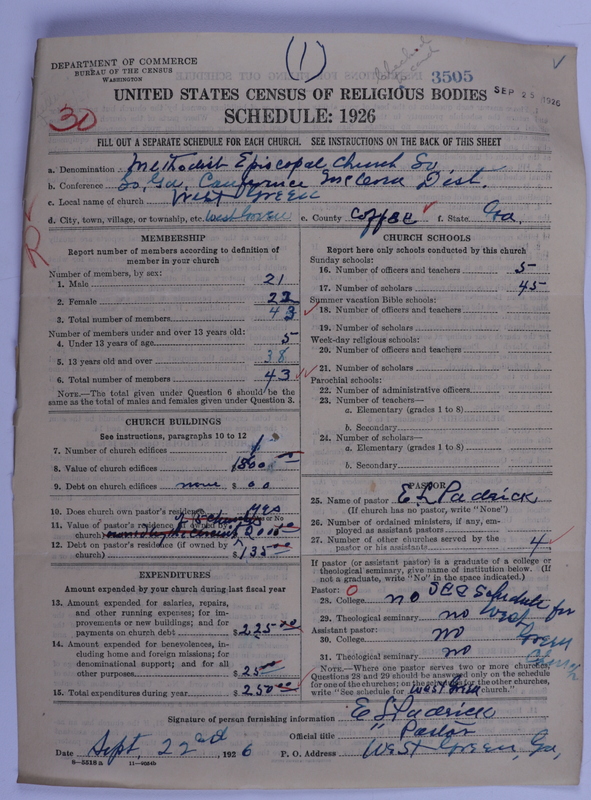 (1)
DEPARTMENT OF COMMERCE
BUREAU OF THE CENSUS
WASHINGTON
3505
SEP 25 1926
UNITED STATES CENSUS OF RELIGIOUS BODIES
SCHEDULE: 1926
30
FILL OUT A SEPARATE SCHEDULE FOR EACH CHURCH. SEE INSTRUCTIONS ON THE BACK OF THIS SHEET
a. Denomination Methodist Episcopal Church So
b. Conference So. Ga. Conference Dist.
c. Local name of church West Green
d. City, town, village, or township, etc. West Green e. County Coffee f. State Ga.
R
MEMBERSHIP
Report number of members according to definition of
member in your church
Number of members, by sex:
1. Male 21
2. Female 22
3. Total number of members 43
Number of members under and over 13 years old:
4. Under 13 years of age 5
5. 13 years old and over 38
6. Total number of members 43
NOTE.—The total given under Question 6 should be the
same as the total of males and females given under Question 3.
CHURCH BUILDINGS
See instructions, paragraphs 10 to 12
7. Number of church edifices 1
8. Value of church edifices $ 1500 00
9. Debt on church edifices none $ 00
10. Does church own pastor's residence yes
Yes or No
11. Value of pastor's residence (if owned by
church) 2000 00
12. Debt on pastor's residence (if owned by
church) $ 135 00
EXPENDITURES
Amount expended by your church during last fiscal year
13. Amount expended for salaries, repairs,
and other running expenses; for im-
provements or new buildings; and for
payments on church debt $ 225.00
14. Amount expended for benevolences, in-
cluding home and foreign missions; for
denominational support; and for all
other purposes $ 25 00
15. Total expenditures during year $ 250.00
CHURCH SCHOOLS
Report here only schools conducted by this church
Sunday schools:
16. Number of officers and teachers 5
17. Number of scholars 45
Summer vacation Bible schools:
18. Number of officers and teachers
19. Number of scholars
Week-day religious schools:
20. Number of officers and teachers
21. Number of scholars
Parochial schools:
22. Number of administrative officers
23. Number of teachers—
a. Elementary (grades 1 to 8)
b. Secondary
24. Number of scholars—
a. Elementary (grades 1 to 8)
b. Secondary
PASTOR
25. Name of pastor E L Padrick
(If church has no pastor, write "None")
26. Number of ordained ministers, if any, em-
ployed as assistant pastors
27. Number of other churches served by the
pastor or his assistants 4
If pastor (or assistant pastor) is a graduate of a college or
theological seminary, give name of institution below. (If
not a graduate, write "No" in the space indicated.)
Pastor: 0
28. College no See schedule for
29. Theological seminary no West
Assistant pastor: Green
30. College no Church
31. Theological seminary no
NOTE.—Where one pastor serves two or more churches,
Questions 28 and 29 should be answered only on the schedule
for one of the churches; on the schedules for the other churches,
write "See schedule for West Green church."
Signature of person furnishing information E L Padrick
Official title " Pastor
Date Sept, 22nd, 1926 P. O. Address West Green, Ga,
8—5518 a 11—9054b